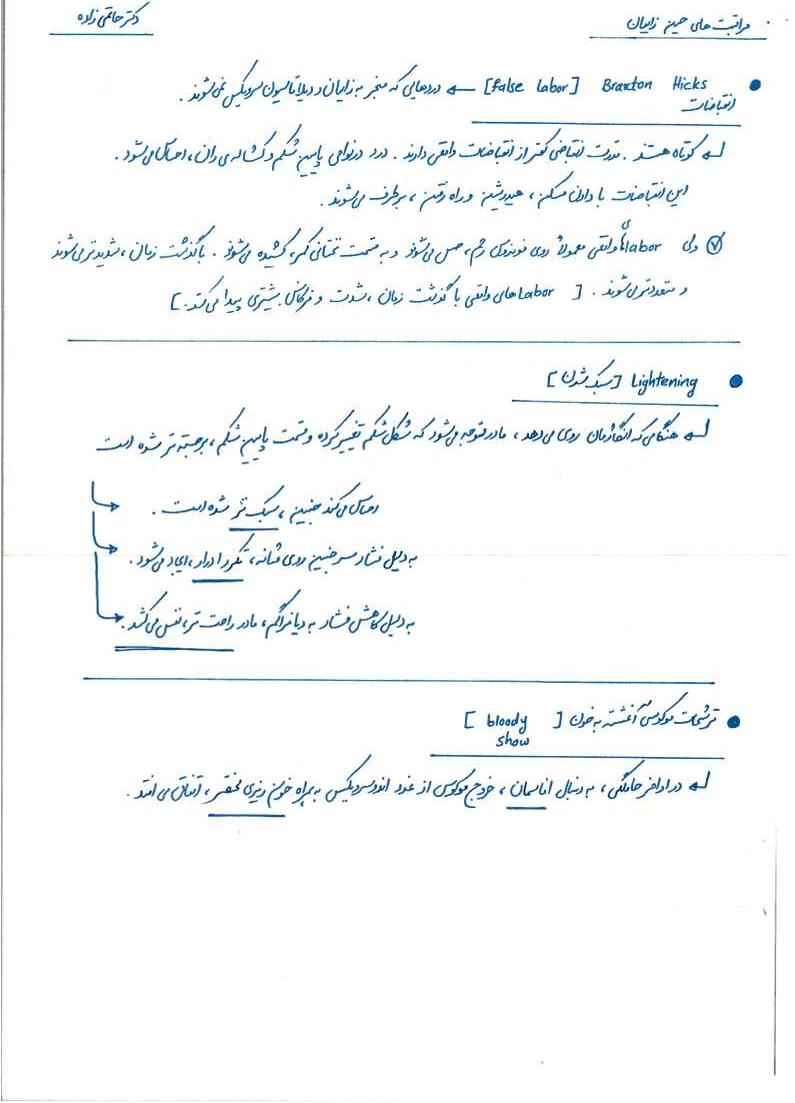 مراقبت های حین زایمان
دکتر حاتمی زاده
انقباضات Braxton Hicks [false labor] ← دردهایی که منجر به زایمان و دیلاتاسیون سرویکس نمی شوند .
کوتاه هستند . قدرت انقباضی کمتر از انقباضات واقعی دارند . درد در نواحی پایین شکم و کشاله ی ران ، احساس می شود .
این انقباضات با دادن مسکن ، هیدریشن و راه رفتن ، برطرف می شوند .
ولی labor های واقعی معمولاً روی فوندوس رحم ، حس می شوند و به قسمت تحتانی کمر ، کشیده می شوند . با گذشت زمان ، شدیدتر می شوند
و متعددتر می شوند . [ labor های واقعی با گذشت زمان ، شدت و فرکانس بیشتری پیدا می کنند . ]
Lightening [سبک شدن]
هنگامی که انگاژمان روی می دهد ، مادر متوجه می شود که شکل شکم تغییر کرده و قسمت پایین شکم ، برجسته تر شده است
احساس می کند جنین ، سبک تر شده است .
به دلیل فشار سر جنین روی مثانه ، تکرر ادرار ، ایجاد می شود .
به دلیل کاهش فشار به دیافراگم ، مادر راحت تر ، نفس می کشد .
ترشحات موکوسی آغشته به خون [bloody show]
در اواخر حاملگی ، به دنبال افاسمان ، خروج موکوس از غدد اندوسرویکس به همراه خون ریزی مختصر ، اتفاق می افتد .